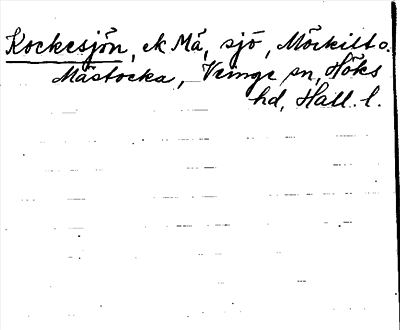 Kockesjön, ek Må, sjö, Möckilt o.
Mästocka, Veinge sn, Höks
hd, Hall. l.